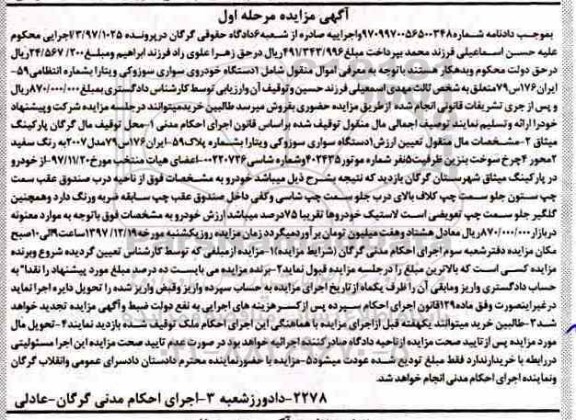 آگهی مزایده مرحله اول
بموجب دادنامه شماره۹۷۰۹۹۷۰۰۵۶۵۰۰۳۴۸واجراییه صادره از شعبه۶دادگاه حقوقی گرگان درپرونده ۳/۹۷/۱۰۲۵اجرایی محکوم
علیه حسین اسماعیلی فرزند محمد بپرداخت مبلغ۴۹۱/۳۴۳/۹۹۶ریال درحق زهرا علوی راد فرزند ابراهیم ومبلغ۲۴/۵۶۷/۲۰۰ریال
درحق دولت محکوم وبدهکار هستند باتوجه به معرفی اموال منقول شامل ۱دستگاه خودروی سواری سوزوکی ویتارا بشماره انتظامی۵۹-
ایران۱۷۶س۷۹متعلق به شخص ثالث مهدی اسمعیلی فرزند حسین و توقیف آن وارزیابی توسط کارشناس دادگستری بمبلغ۸۷۰/۰۰۰/۰۰۰ریال
و پس از جری تشریفات قانونی انجام شده از طریق مزایده حضوری بفروش میرسد طالبین خریدمیتوانند درجلسه مزایده شرکت وپیشنهاد
خودرا ارائه وتسلیم نمایند توصیف اجمالی مال منقول توقیف شده براساس قانون اجرای احکام مدنی ۱-محل توقیف مال گرگان پارکینگ
میثاق ۲-مشخصات مال منقول تعیین ارزش۱دستگاه سواری سوزوکی ویتارا بشماره پلاک۵۹-ایران۱۷۶س۷۹مدل۲۰۰۷به رنگ سفید
۲محور ۴چرخ سوخت بنزین ظرفیت۵نفر شماره موتور۴۰۲۴۳۵وشماره شاسی۰۰۲۲۰۷۳۶-اعضای هیات منتخب مورخ۹۷/۱۱/۲۰-از خودرو
در پارکینگ میثاق شهرستان گرگان بازدید که نتیجه بشرح ذیل میباشد خودرو به مشخصات فوق از ناحیه درب صندوق عقب سمت
چپ ستون جلو سمت چپ گلاف بالای درب جلو سمت چپ شاسی وکفی داخل صندوق عقب چپ سابقه ضربه ورنگ دارد وهمچنین
گلگیر جلو سمت چپ تعویضی است لاستیک خودروها تقریبا ۷۵درصد میباشد ارزش خودرو به مشخصات فوق باتوجه به موارد معنونه
دربازار۸۷۰/۰۰۰/۰۰۰ریال معادل هشتاد وهفت میلیون تومان برآوردمیگردد زمان مزایده روزیکشنبه مورخه۱۳۹۷/۱۲/۱۹ساعت۹الی۱۰صبح
مکان مزایده دفترشعبه سوم اجرای احکام مدنی گرگان (شرایط مزایده)۱-مزایده ازمبلغی که توسط کارشناس تعیین گردیده شروع وبرنده
مزایده کسی است که بالاترین مبلغ را درجلسه مزایده قبول نماید۲-برنده مزایده می بایست ده درصد مبلغ مورد پیشنهاد را نقدا" به
حساب دادگستری واریز ومابقی آن را ظرف یکماه از تاریخ اجرای مزایده به حساب سپرده واریز وقبض واریز شده را تحویل دایره اجرا نماید
درغیراینصورت وفق ماده۱۲۹قانون اجرای احکام سپرده پس از کسرهزینه های اجرایی به نفع دولت ضبط وآگهی مزایده تجدید خواهد
شد۳-طالبین خرید میتوانند یکهفته قبل ازاجرای مزایده با هماهنگی این اجرای احکام ملک توقیف شده بازدید نمایند۴-تحویل مال
مورد مزایده پس از تایید صحت مزایده ازناحیه دادگاه صادرکننده اجرائیه خواهد بود در صورت عدم تایید صحت مزایده این اجرا مسئولیتی
دررابطه با خریدارندارد فقط مبلغ تودیع شده عودت میشود۵-مزایده با حضورنماینده محترم دادستان دادسرای عمومی وانقلاب گرگان
ونماینده اجرای احکام مدنی انجام خواهد شد.
۲۲۷۸-دادورزشعبه ۳-اجرای احکام مدنی گرگان-عادلی